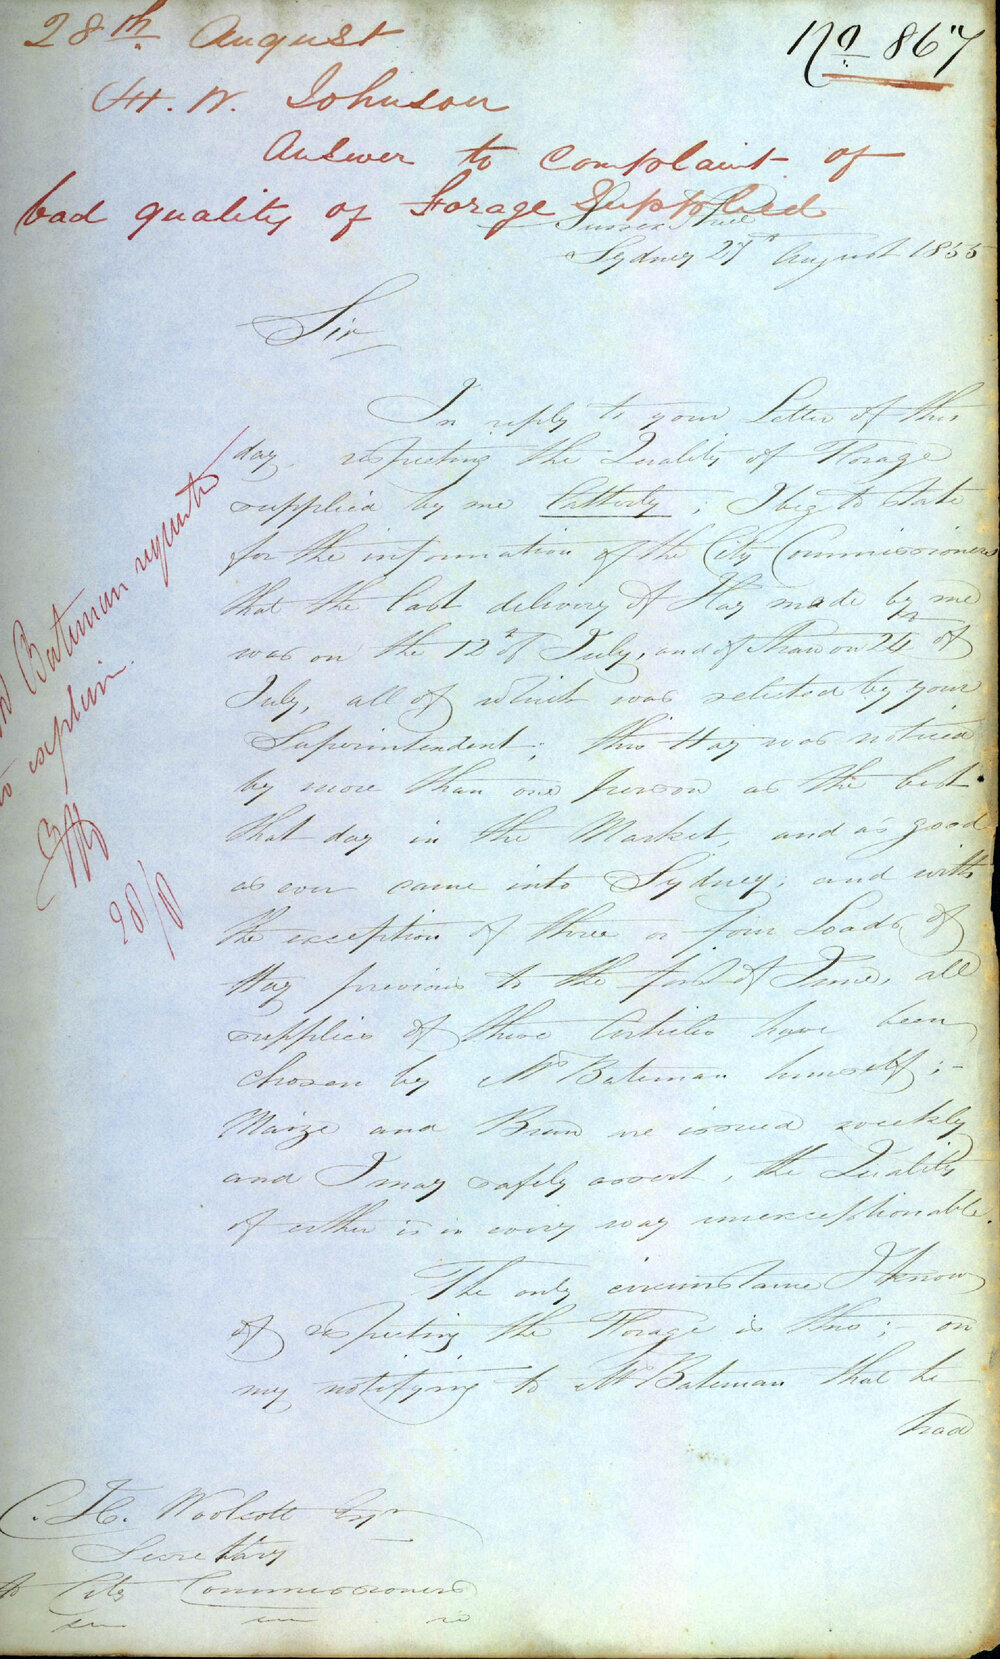 28th August
No 867
H. W. Johnson
Answer to complaint of
bad quality of Forage Supplied
Sussex Street
Sydney 27th August 1855
Sir
In reply to your Letter of this
day, respecting the Quality of Forage
supplied by me latterly; I beg to state
for the information of the City Commissioners
that the last delivery of Hay made by me
was on the 12th of July, and of Straw on 24th of
July, all of which was selected by your
Superintendent; this Hay was noticed
by more than one person as the best
that day in the Market, and as good
as ever came into Sydney; and with
the exception of three or four Loads of
Hay previous to the first of June, all
supplies of these Articles have been
chosen by Mr Bateman himself;-
Maize and Bran are issued weekly
and I may safely assert, the Quality
of either is in every way unexceptionable.
The only circumstance I know
of respecting the Forage is this;- on
my notifying to Mr Bateman that he
had
Bateman requested
to explain.
28/8
C. H. Woolcott Esqr
Secretary
to City Commissioners